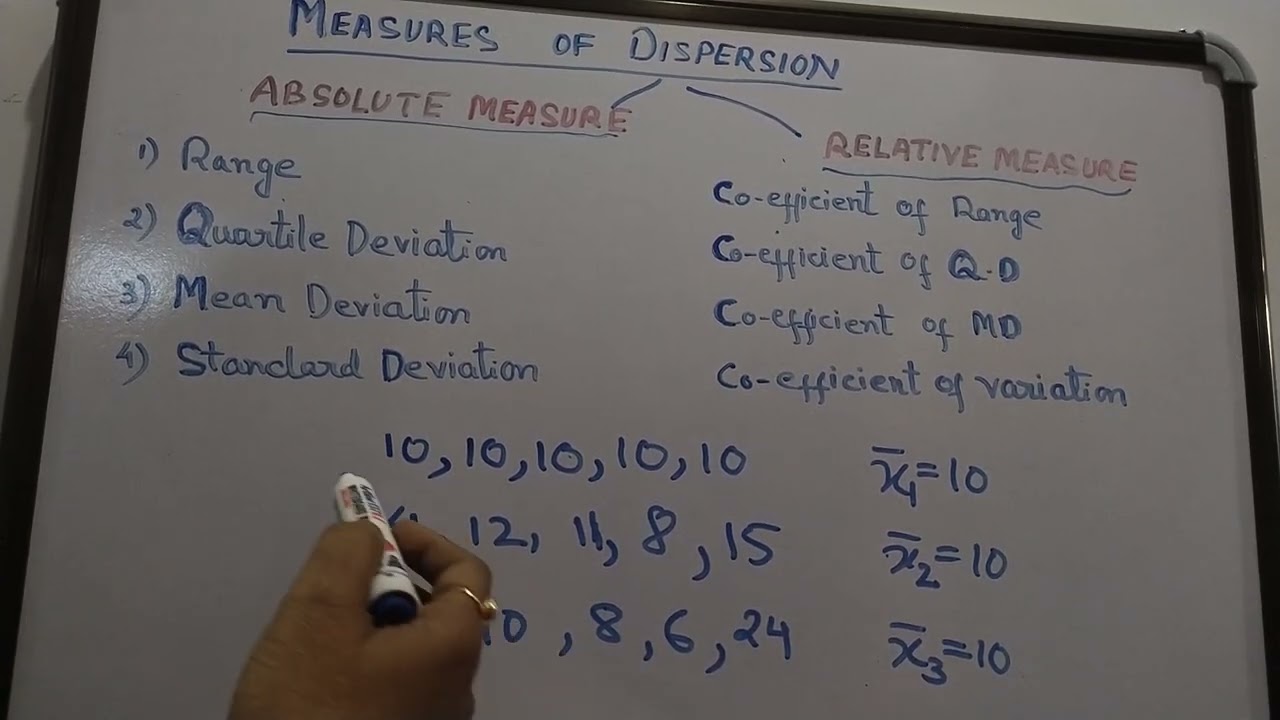 MEASURES OF DISPERSION
ABSOLUTE MEASURE
RELATIVE MEASURE
1) Range
Co-efficient of Range
2) Quartile Deviation
Co-efficient of Q.D
3) Mean Deviation
Co-efficient of MD
4) Standard Deviation
Co-efficient of variation
10, 10, 10, 10, 10
x̄₁=10
12, 11, 8, 15
x̄₂=10
10, 8, 6, 24
x̄₃=10